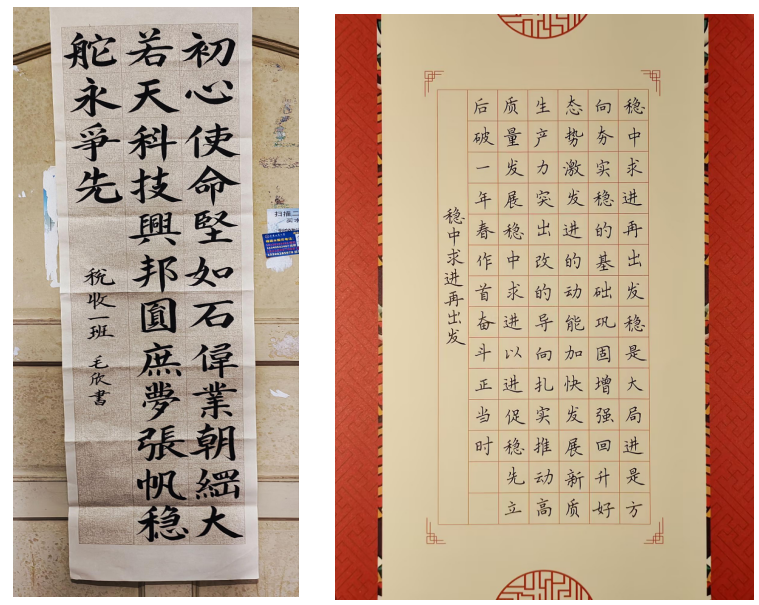 初心使命堅如石偉業朝綱大
若天科技興邦圓庶夢張帆稳
舵永爭先
税收一班 毛欣書
扫描二
稳中求进再出发稳是大局进是方
向夯实稳的基础巩固增强回升好
态势激发进的动能加快发展新质
生产力突出改的导向扎实推动高
质量发展稳中求进以进促稳先立
后破一年春作首奋斗正当时
稳中求进再出发